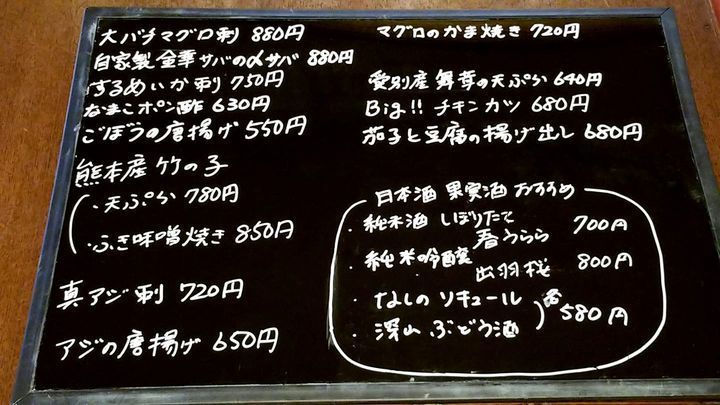 大バチマグロ刺 880円
自家製 金華サバの〆サバ 880円
するめいか刺 750円
なまこポン酢 630円
ごぼうの唐揚げ 550円
熊本産 竹の子
・天ぷら 780円
・ふき味噌焼き 850円
真アジ刺 720円
アジの唐揚げ 650円
マグロのかま焼き 720円
愛別産 舞茸の天ぷら 640円
Big!! チキンカツ 680円
茄子と豆腐の揚げ出し 680円
日本酒 果実酒 おすすめ
・純米酒 しぼりたて
春うらら 700円
・純米吟醸
出羽桜 800円
・なしのリキュール
・深山ぶどう酒
各580円